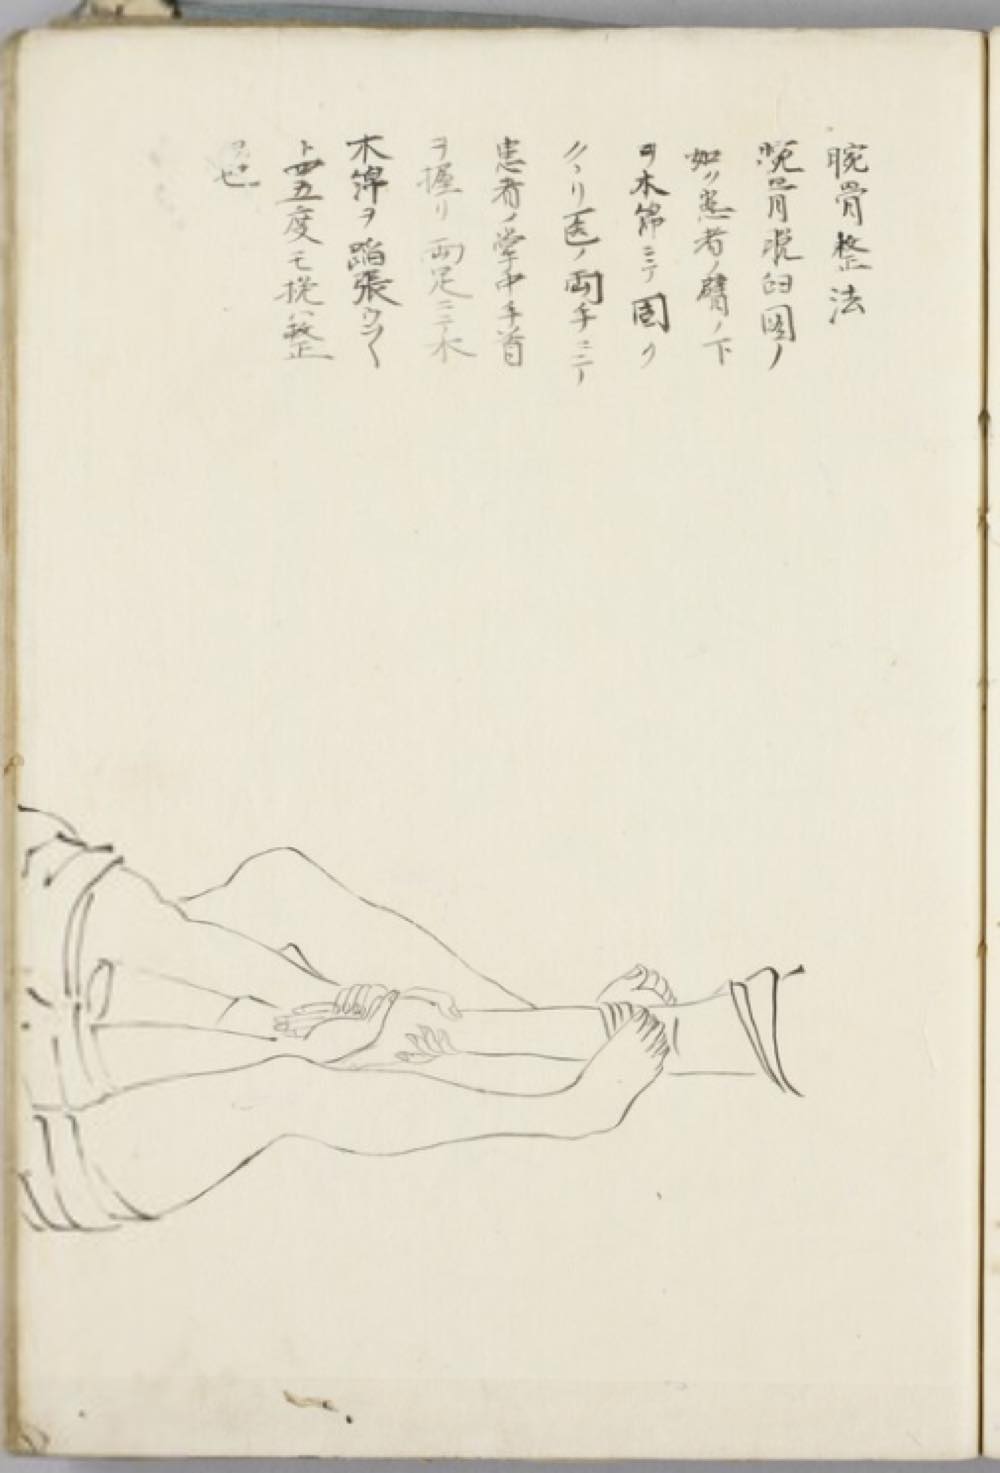 腕骨整法
腕骨脱臼図ノ
如ク患者ノ臂ノ下
ヲ木綿ニテ固ク
クヽリ医ノ両手ニテ
患者ノ掌中手首
ヲ握リ両足ニテ木
木綿ヲ蹈張ウシ〱
ト四五度モ挽ハ整
也